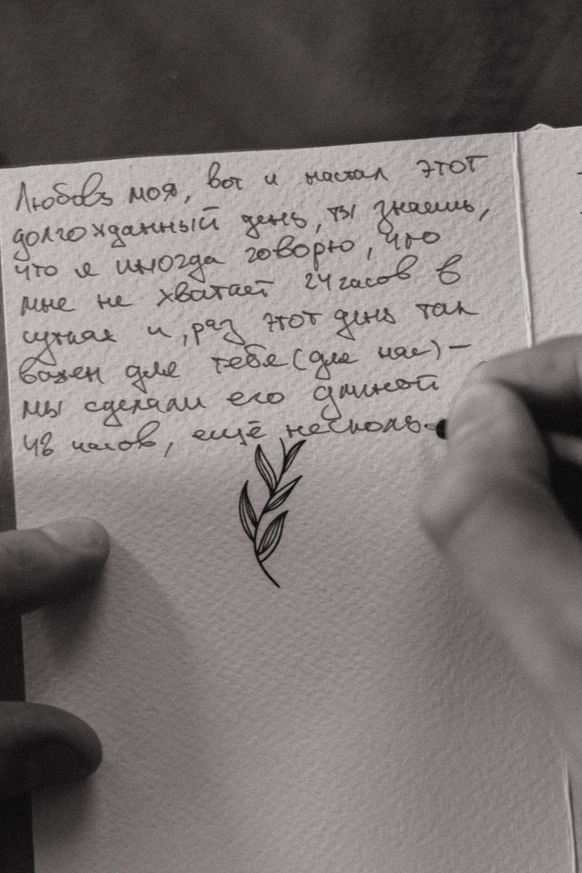 Любовь моя, вот и настал этот
долгожданный день, ты знаешь,
что я иногда говорю, что
мне не хватает 24 часов в
сутках и, раз этот день так
важен для тебя (для нас) –
мы сделали его длиной
48 часов, ещё несколь